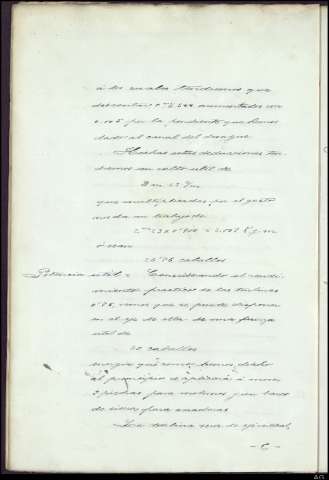 á los cuales tendremos que
descontar 0'm 544 aumentados con
0.105 por la pendiente que hemos
dado al canal del desagüe.
Hechas estas deducciones ten-
dremos un salto util de
2 m
que multiplicadas por el gasto
nos da un trabajo de
K g. m
ó sean
caballos
Potencia util = Considerando el rendi-
miento practico de las turbinas
0'75, vemos que se puede disponer
en el eje de ella de una fuerza
util de
20 caballos
energia que como hemos dicho
al principio se aplicará á mover
2 piedras para molinos y un banco
de sierra para maderas
La turbina sera de